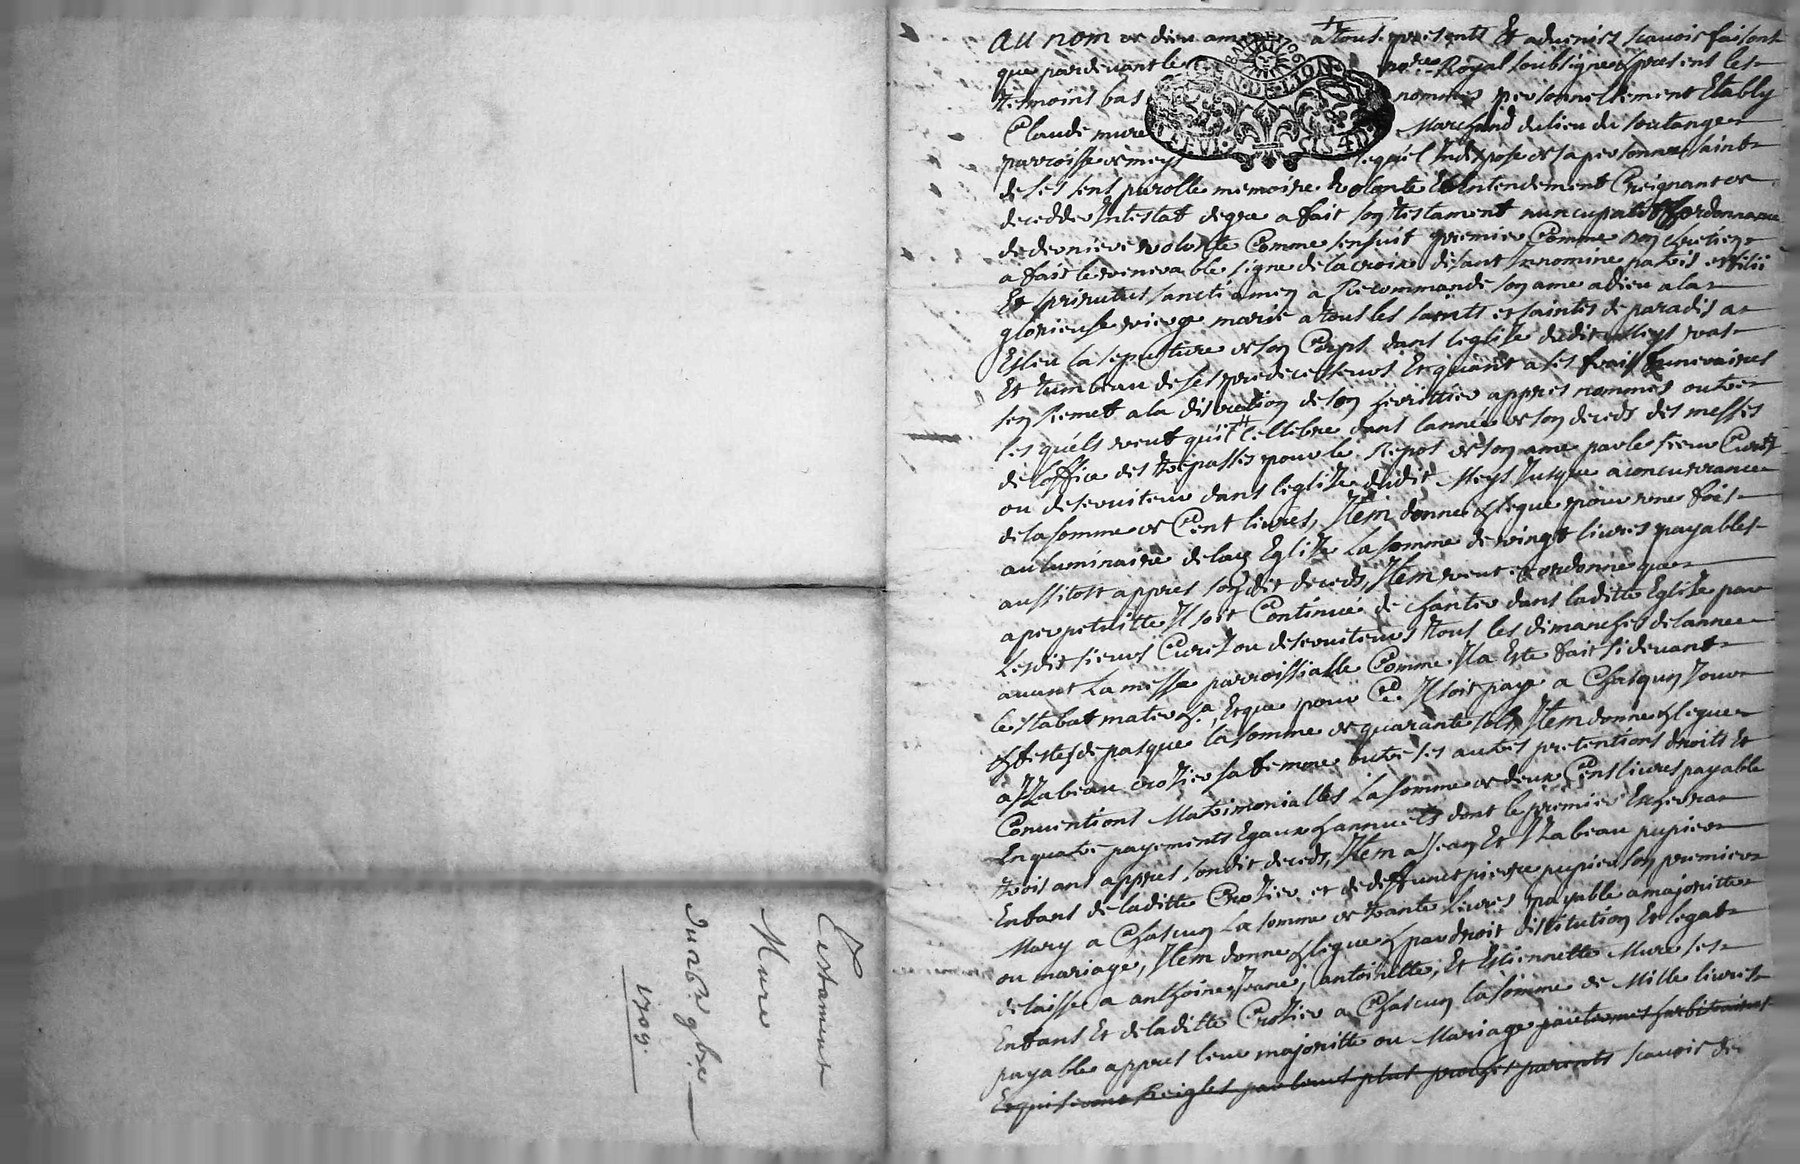 Testament
Mure
du 26e 9bre
1709.
Au nom de dieu amen a tous presents Et advenirs scavoir faisons
que pardevant le no.re Royal soubsigne & presens les
temoins bas nommes personnellement Estably
Claude mure Marchand du lieu du soulanger
parroisse de meys lequel Indispose de sa personne saint
de ses sens parolle memoire volonte Et Entendement Creignant de
decedder Intestat degre a fait son testament nuncupatif & ordonnance
de derniere volonte Comme sensuit premier Comme bon chretien
a fait le venerable signe de la croix disant In nomine patris et filii
Et spiritus sancti amen a Recommande son ame a dieu a la
glorieuse vierge marie a tous les saints et saintes de paradis a
Esleu la sepulture de son Corps dans leglise dudit Meys vas
Et tumbeau de ses predecesseurs Et quant a ses frais funeraires
sen Remet a la discretion de son heritier appres nommes outre
les quels veut quil Cellebre dans lannee de son deceds des messes
de loffice des trepasses pour le Repos de son ame par les sieur Curés
ou deserviteur dans leglise dudit Meys Jusque a concurrance
de la somme de Cent livres, Item donne & legue pour une fois
au luminaire de lad. Eglise La somme de vingt livres payables
aussitost appres sondit deceds, Item veut & ordonne que
a perpetuitte Il soit Continué de chanter dans laditte Eglise par
Lesdit sieurs Cures ou deserviteurs tous les dimanches de lannee
avant La messe parroissialle Comme Il a Este fait si devant
le stabat mater &a, Et que pour Ce Il soit paye a Chasqun Jour
& festes de pasque la somme de quarante sols, Item donne & legue
a Izabeau Crozier sa femme outre ses autres pretentions droits Et
Conventions Matrimonialles La somme de deux Cens livres payable
En quatre payements Egaux & annuels dont le premier Escherra
trois ans appres sondit deceds, Item a Jean Et Izabeau pupier
Enfans de laditte Crozier et de deffunct pierre pupier son premier
Mary a Chascun La somme de trante livres payable a majoritte
ou mariage, Item donne & legue & par droit distitution Et legat
delaisse a anthoine, Jeane, antoinette, Et Estiennette Mure ses
Enfans Et de laditte Crozier a Chascun la somme de Mille livres
payable appres leur majoritte ou Mariage par termes & arbitraires
Et qui seront Reigles par leurs plus proches parents scavoir de